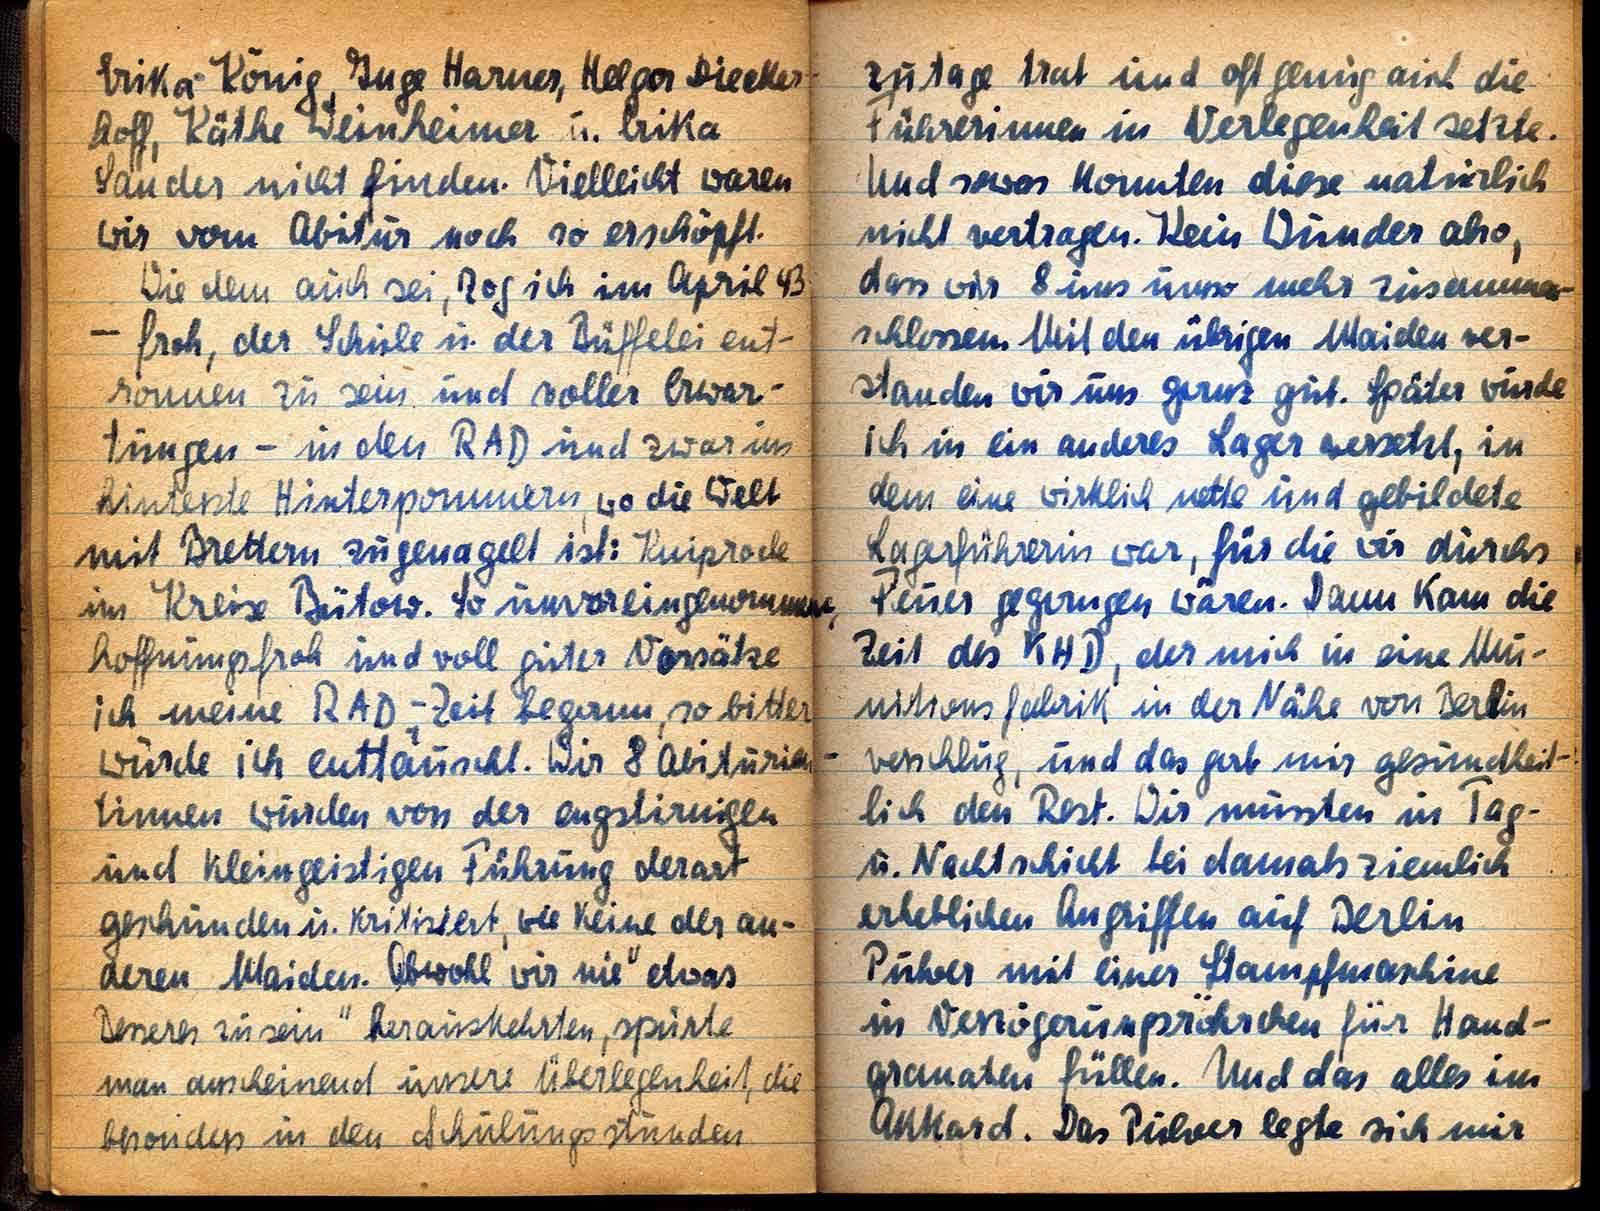 Erika König, Inge Harner, Helga Diecker-
hoff, Käthe Weinheimer u. Erika
Sander nicht finden. Vielleicht waren
wir vom Abitur noch so erschöpft.
Wie dem auch sei, zog ich im April 43
– froh, der Schule u. der Büffelei ent-
ronnen zu sein und voller Erwar-
tungen – in den RAD und zwar ins
hinterste Hinterpommern, wo die Welt
mit Brettern zugenagelt ist: Kniprode
im Kreise Bütow. So unvoreingenommen,
hoffnungsfroh und voll guter Vorsätze
ich meine RAD-Zeit begann, so bitter
wurde ich enttäuscht. Wir 8 Abiturien-
tinnen wurden von der engstirnigen
und kleingeistigen Führung derart
geschunden u. kritisiert, wie keine der an-
deren Maiden. Obwohl wir nie "etwas
Besseres zu sein" herauskehrten, spürte
man anscheinend unsere Überlegenheit, die
besonders in den Schulungsstunden
zutage trat und oft genug auch die
Führerinnen in Verlegenheit setzte.
Und sowas konnten diese natürlich
nicht vertragen. Kein Wunder also,
dass wir 8 uns umso mehr zusammen-
schlossen. Mit den übrigen Maiden ver-
standen wir uns ganz gut. Später wurde
ich in ein anderes Lager versetzt, in
dem eine wirklich nette und gebildete
Lagerführerin war, für die wir durchs
Feuer gegangen wären. Dann kam die
Zeit des KHD, der mich in eine Mu-
nitionsfabrik in der Nähe von Berlin
verschlug, und das gab mir gesundheit-
lich den Rest. Wir mussten in Tag-
u. Nachtschicht bei damals ziemlich
erheblichen Angriffen auf Berlin
Pulver mit einer Stampfmaschine
in Verzögerungsröhrchen für Hand-
granaten füllen. Und das alles im
Akkord. Das Pulver legte sich mir